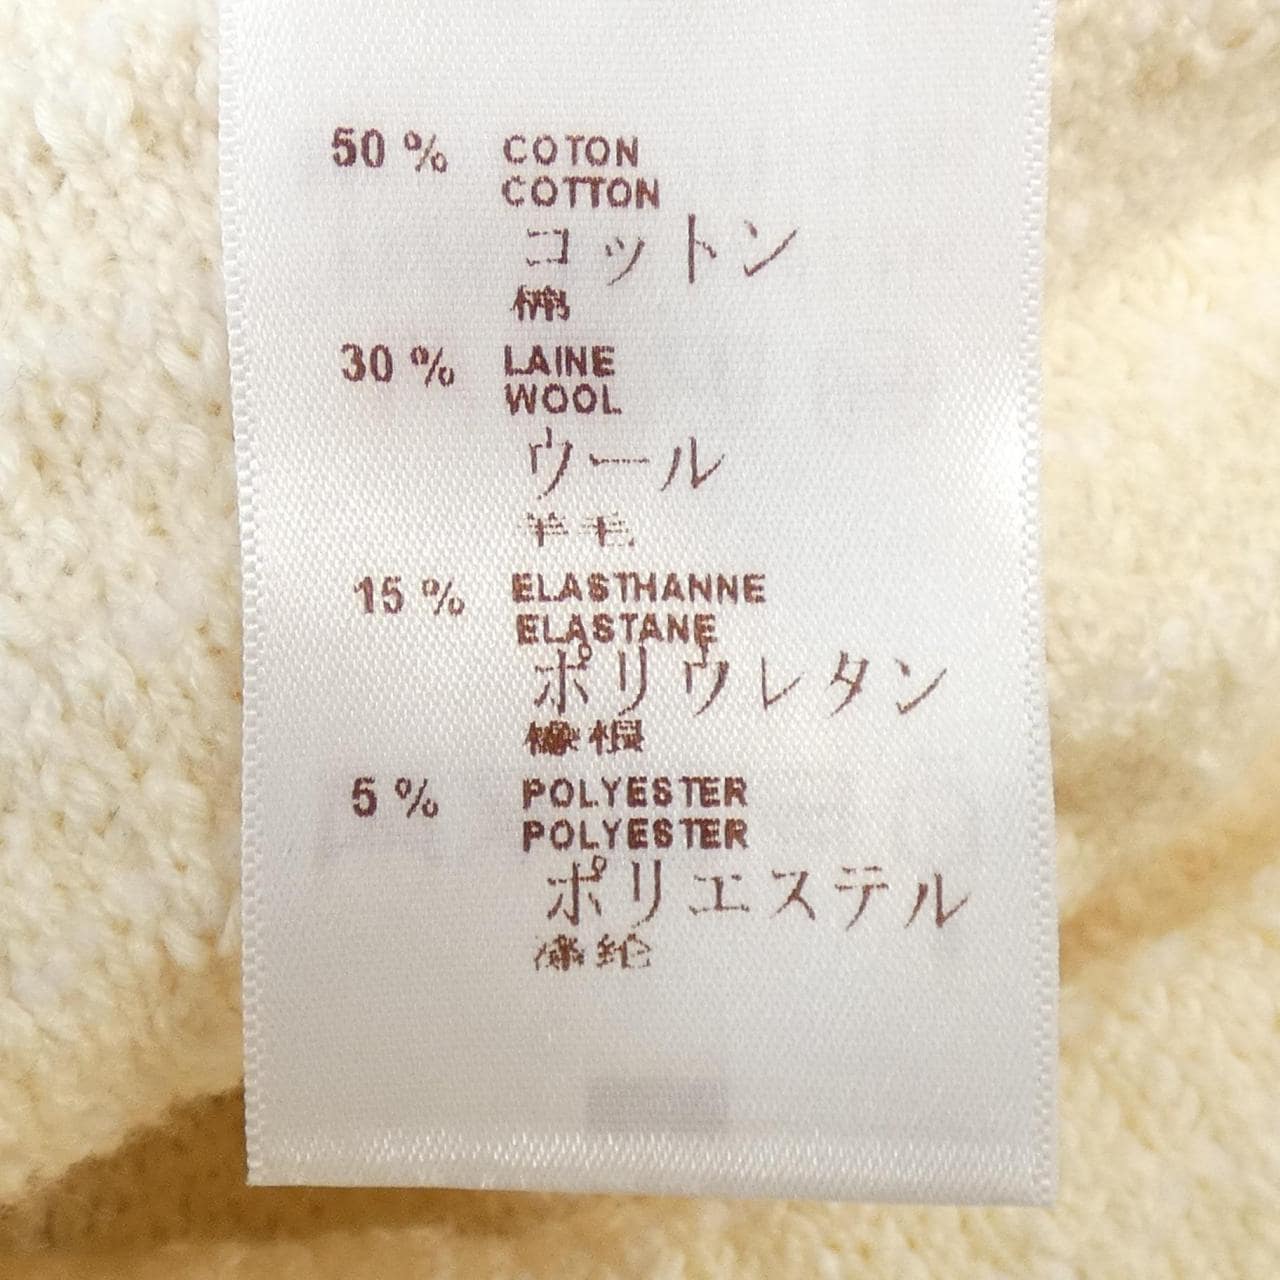 50 % COTON
COTTON
コットン
棉
30 % LAINE
WOOL
ウール
羊毛
15 % ELASTHANNE
ELASTANE
ポリウレタン
5 % POLYESTER
POLYESTER
ポリエステル
涤纶